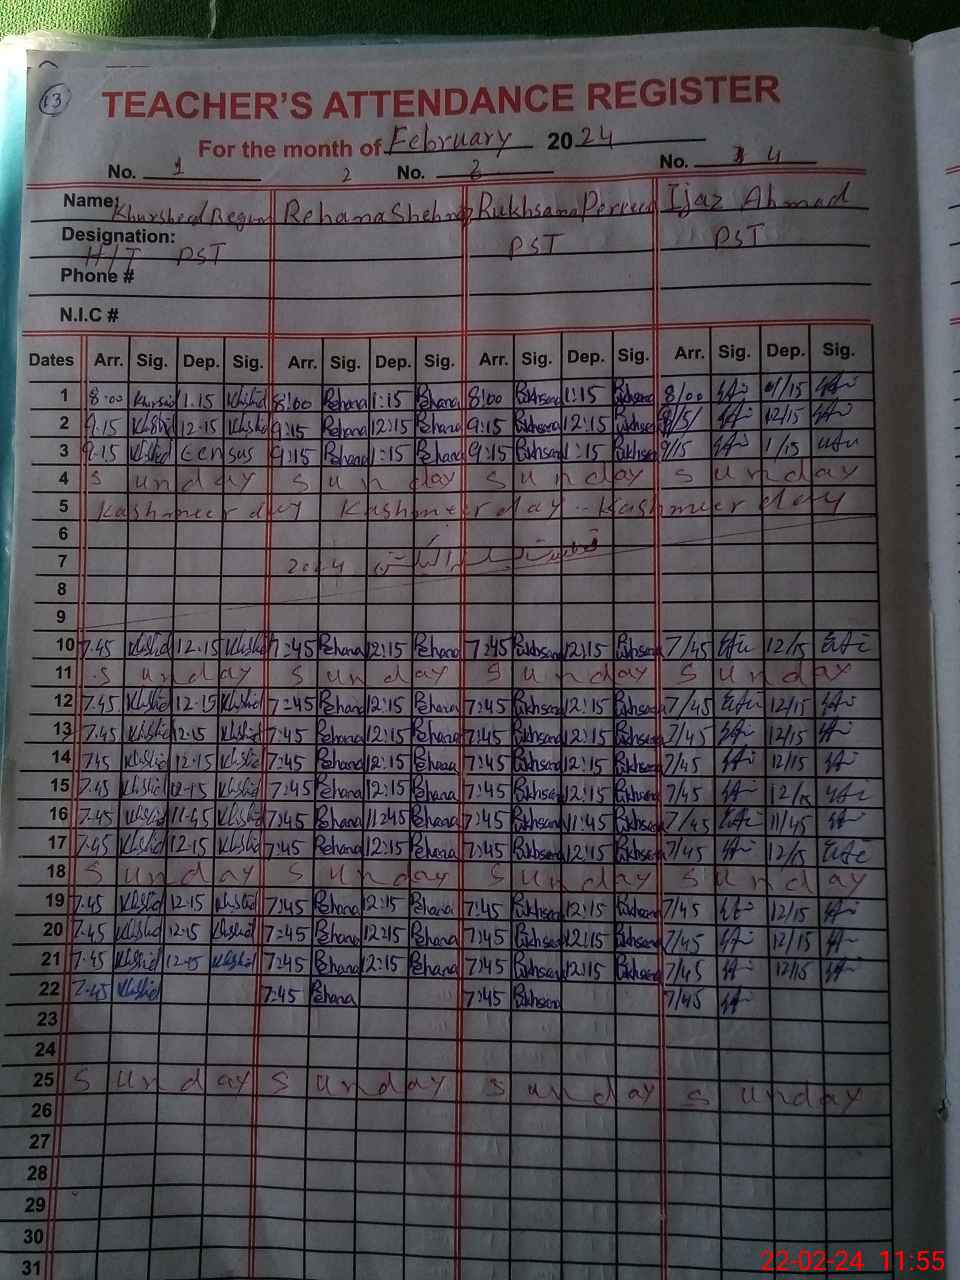 13
TEACHER'S ATTENDANCE REGISTER
For the month of February 2024
No. 1 2 No. 3 No. 4
Name: Khursheed Begum Rehana Shehnaz Rukhsana Perveen Ijaz Ahmad
Designation: H/T PST PST PST
Phone #
N.I.C #
Dates Arr. Sig. Dep. Sig. Arr. Sig. Dep. Sig. Arr. Sig. Dep. Sig. Arr. Sig. Dep. Sig.
1 8:00 1.15 8:00 Rehana 1:15 Rehana 8:00 Rukhsana 1:15 Rukhsana 8/00 01/15
2 9.15 12.15 9:15 Rehana 12:15 Rehana 9:15 Rukhsana 12:15 Rukhsana 12/15
3 9.15 Census 9:15 Rehana 1:15 Rehana 9:15 Rukhsana 1:15 Rukhsana 9/15 1/15
4 Sunday Sunday Sunday Sunday
5 Kashmeer day Kashmeer day Kashmeer day
6
7 2024
8
9
10 7.45 12.15 7:45 Rehana 12:15 Rehana 7:45 Rukhsana 12:15 Rukhsana 7/45 12/15
11 Sunday Sunday Sunday Sunday
12 7.45 12.15 7:45 Rehana 12:15 Rehana 7:45 Rukhsana 12:15 Rukhsana 7/45 12/15
13 7.45 12.15 7:45 Rehana 12:15 Rehana 7:45 Rukhsana 12:15 Rukhsana 7/45 12/15
14 7.45 12.15 7:45 Rehana 12:15 Rehana 7:45 Rukhsana 12:15 Rukhsana 7/45 12/15
15 7.45 12.15 7:45 Rehana 12:15 Rehana 7:45 Rukhsana 12:15 Rukhsana 7/45 12/15
16 7.45 11.45 7:45 Rehana 11:45 Rehana 7:45 Rukhsana 11:45 Rukhsana 7/45 11/45
17 7.45 12.15 7:45 Rehana 12:15 Rehana 7:45 Rukhsana 12:15 Rukhsana 7/45 12/15
18 Sunday Sunday Sunday Sunday
19 7.45 12.15 7:45 Rehana 12:15 Rehana 7:45 Rukhsana 12:15 Rukhsana 7/45 12/15
20 7.45 12.15 7:45 Rehana 12:15 Rehana 7:45 Rukhsana 12:15 Rukhsana 7/45 12/15
21 7.45 12.15 7:45 Rehana 12:15 Rehana 7:45 Rukhsana 12:15 Rukhsana 7/45 12/15
22 7.45 7:45 Rehana 7:45 Rukhsana 7/45
23
24
25 Sunday Sunday Sunday Sunday
26
27
28
29
30
31
22-02-24 11:55